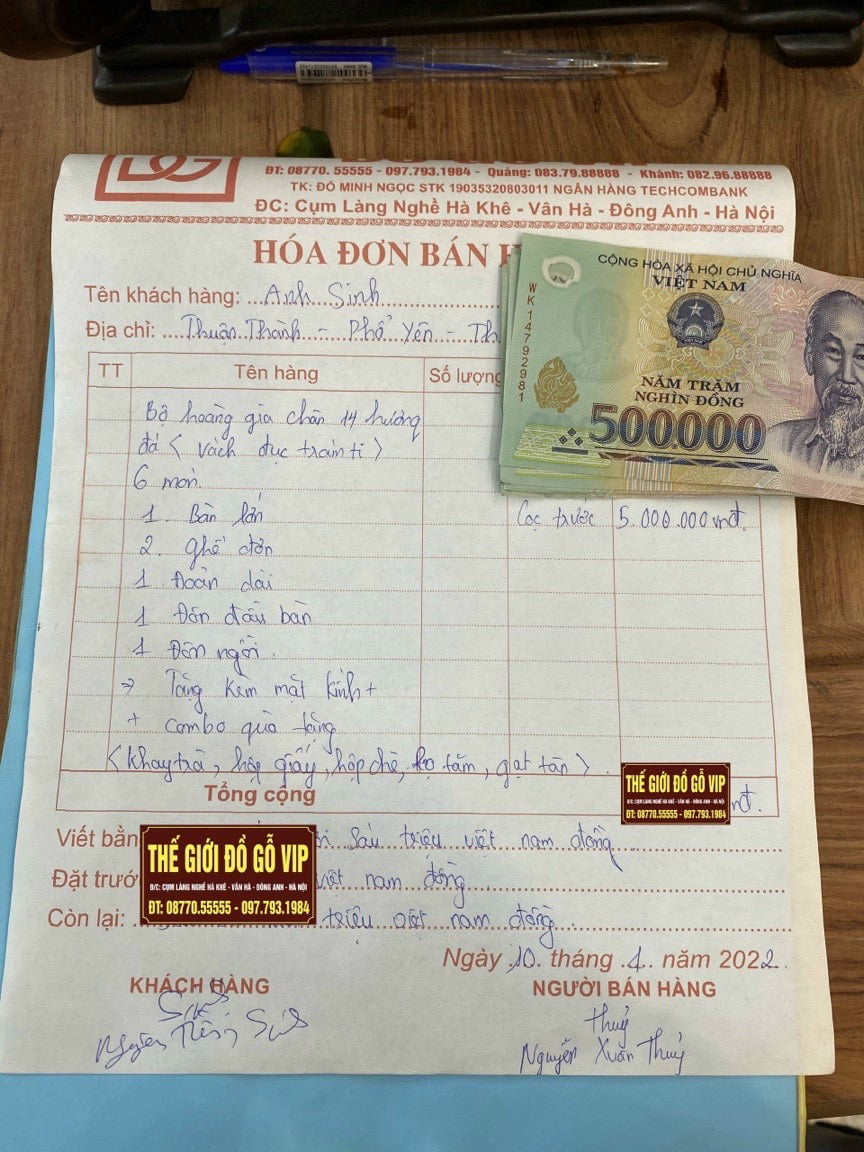 ĐT: 08770. 55555 - 097.793.1984 - Quảng: 083.79.88888 - Khánh: 082.96.88888
TK: ĐỖ MINH NGỌC STK 19035320803011 NGÂN HÀNG TECHCOMBANK
ĐC: Cụm Làng Nghề Hà Khê - Vân Hà - Đông Anh - Hà Nội
HÓA ĐƠN BÁN
Tên khách hàng: Anh Sinh
Địa chỉ: Thuận Thành - Phổ Yên - Th
TT Tên hàng Số lượng
CỘNG HÒA XÃ HỘI CHỦ NGHĨA
VIỆT NAM
WK14792981
NĂM TRĂM
NGHÌN ĐỒNG
500.000
Bộ hoàng gia chân 14 hương
đá < vách đục tranh ti >
6 món.
1. Bàn lớn Cọc trước 5.000.000 vnđ.
2. Ghế đơn
1 Đoản dài
1 Đôn đầu bàn
1 Đôn ngồi.
→ Tặng kèm mặt kính +
+ combo quà tặng
< khay trà, hộp giấy, hộp chè, lọ tăm, gạt tàn >.
Tổng cộng vnđ.
THẾ GIỚI ĐỒ GỖ VIP
Đ/C: CỤM LÀNG NGHỀ HÀ KHÊ - VÂN HÀ - ĐÔNG ANH - HÀ NỘI
ĐT: 08770.55555 - 097.793.1984
Viết bằn sáu triệu việt nam đồng
THẾ GIỚI ĐỒ GỖ VIP
Đ/C: CỤM LÀNG NGHỀ HÀ KHÊ - VÂN HÀ - ĐÔNG ANH - HÀ NỘI
ĐT: 08770.55555 - 097.793.1984
Đặt trướ việt nam đồng
Còn lại: triệu việt nam đồng.
Ngày 10 tháng 1 năm 2022
KHÁCH HÀNG NGƯỜI BÁN HÀNG
Thuỷ
Nguyễn Xuân Thuỷ